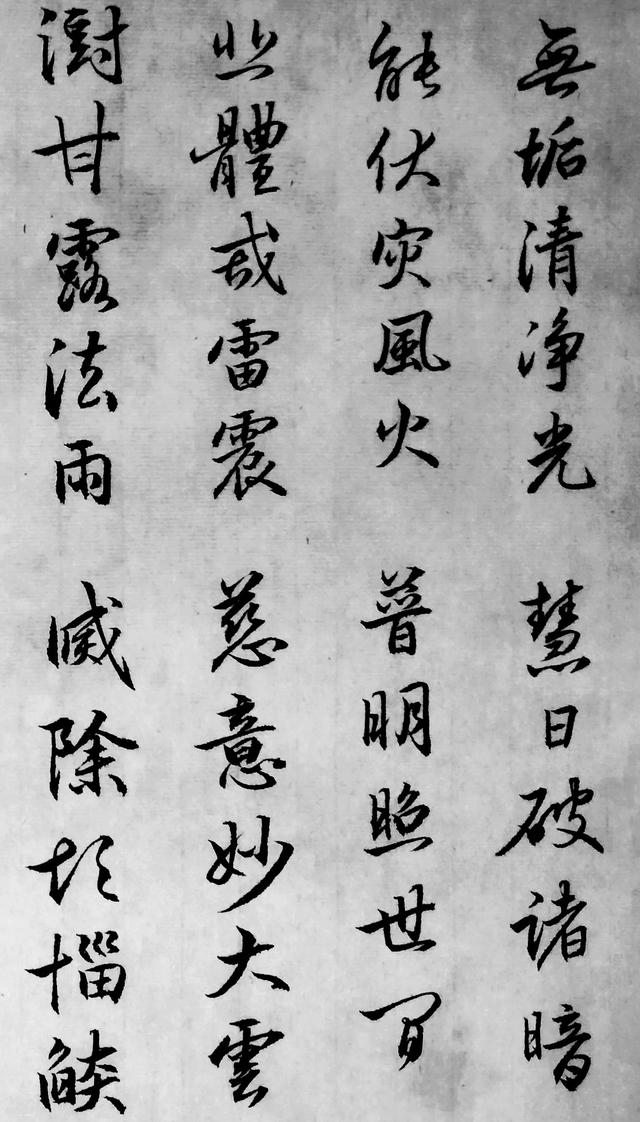 無垢清净光 慧日破諸暗
能伏灾風火 普明照世間
悲體戒雷震 慈意妙大雲
澍甘露法雨 滅除煩惱燄